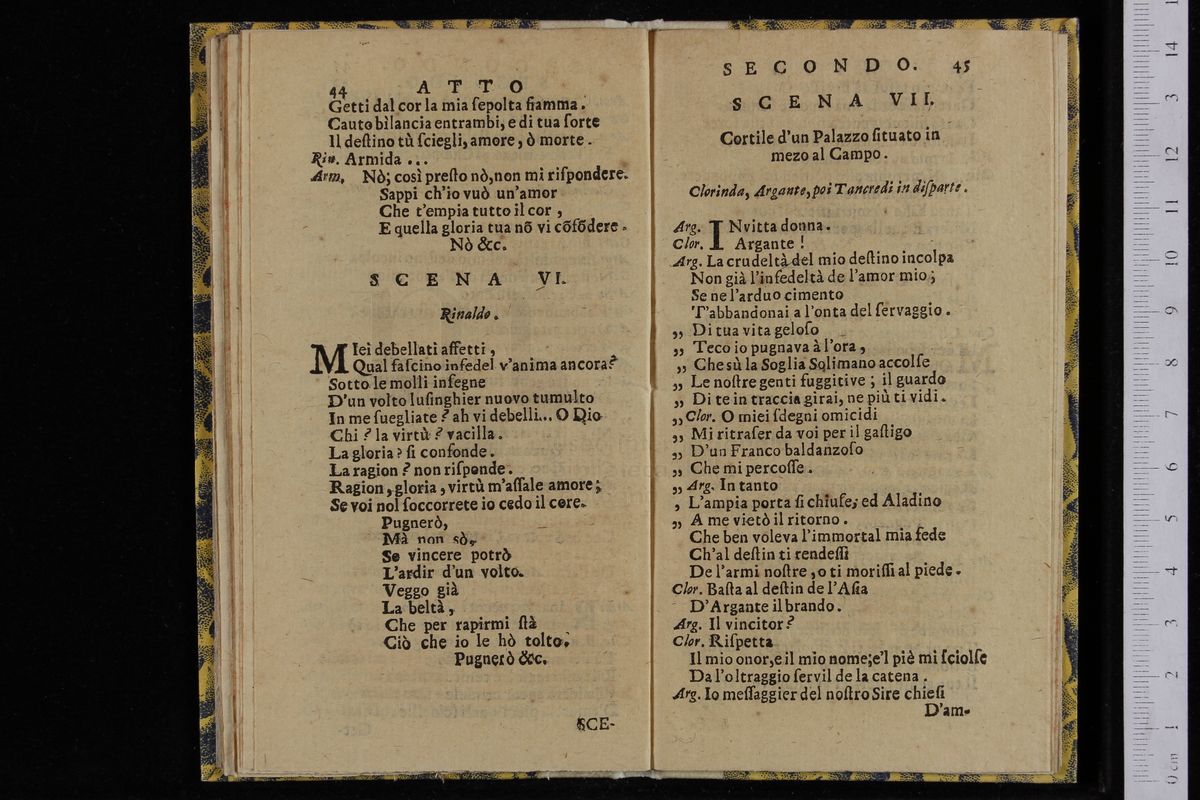 44 ATTO
Getti dal cor la mia ſepolta fiamma.
Cauto bilancia entrambi, e di tua ſorte
Il deſtino tù ſciegli, amore, ò morte.
Rin. Armida ...
Arm. Nò; così preſto nò, non mi riſpondere.
Sappi ch'io vuò un'amor
Che t'empia tutto il cor ,
E quella gloria tua nõ vi cõfõdere.
Nò &c.
SCENA VI.
Rinaldo.
MIei debellati affetti ,
Qual faſcino infedel v'anima ancora?
Sotto le molli inſegne
D'un volto luſinghier nuovo tumulto
In me ſuegliate ? ah vi debelli... O Dio
Chi ? la virtù ? vacilla.
La gloria ? ſi confonde.
La ragion ? non riſponde.
Ragion, gloria, virtù m'aſſale amore;
Se voi nol ſoccorrete io cedo il core.
Pugnerò,
Mà non sò,
Se vincere potrò
L'ardir d'un volto.
Veggo già
La beltà ,
Che per rapirmi ſtà
Ciò che io le hò tolto.
Pugnerò &c.
SCE-
SECONDO. 45
SCENA VII.
Cortile d'un Palazzo ſituato in
mezo al Campo.
Clorinda, Argante, poi Tancredi in diſparte.
Arg. INvitta donna.
Clor. Argante !
Arg. La crudeltà del mio deſtino incolpa
Non già l'infedeltà de l'amor mio ;
Se ne l'arduo cimento
T'abbandonai a l'onta del ſervaggio.
„ Di tua vita geloſo
„ Teco io pugnava à l'ora ,
„ Che sù la Soglia Solimano accolſe
„ Le noſtre genti fuggitive ; il guardo
„ Di te in traccia girai, ne più ti vidi.
„ Clor. O miei ſdegni omicidi
„ Mi ritraſer da voi per il gaſtigo
„ D'un Franco baldanzoſo
„ Che mi percoſſe.
„ Arg. In tanto
, L'ampia porta ſi chiuſe, ed Aladino
„ A me vietò il ritorno.
Che ben voleva l'immortal mia fede
Ch'al deſtin ti rendeſſi
De l'armi noſtre , o ti moriſſi al piede.
Clor. Baſta al deſtin de l'Aſia
D'Argante il brando.
Arg. Il vincitor ?
Clor. Riſpetta
Il mio onor, e il mio nome; e'l piè mi ſciolſe
Da l'oltraggio ſervil de la catena.
Arg. Io meſſaggier del noſtro Sire chieſi
D'am-
0 cm 1 2 3 4 5 6 7 8 9 10 11 12 13 14